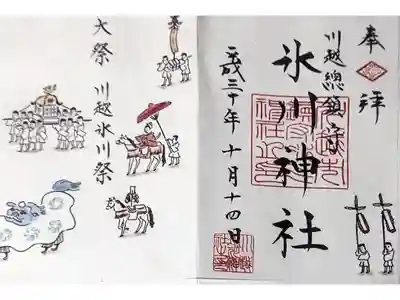 奉拝
川越總鎮守
氷川神社
平成三十年十月十四日
大祭 川越氷川祭